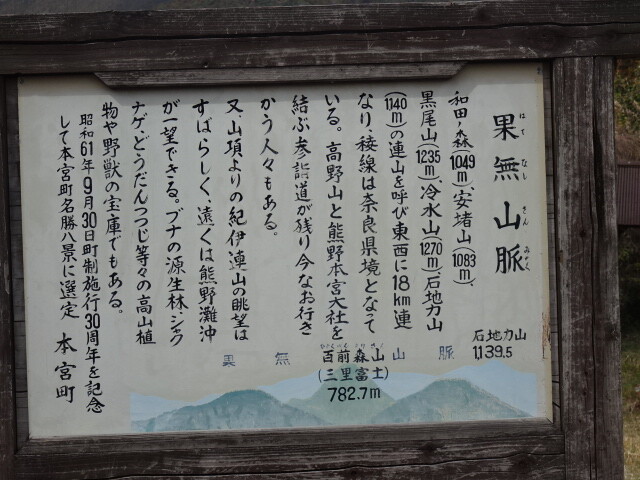 果無山脈
はて なし さん みゃく
和田ノ森(1049m)、安堵山(1083m)、
黒尾山(1235m)、冷水山(1270m)、石地力山
(1140m)の連山を呼び東西に18km連
なり、稜線は奈良県境となって
いる。高野山と熊野本宮大社を
結ぶ参詣道が残り今なお行き
かう人々もある。
又、山頂よりの紀伊連山の眺望は
すばらしく、遠くは熊野灘沖
が一望できる。ブナの源生林・シャク
ナゲ・どうだんつつじ等々の高山植
物や野獣の宝庫でもある。
昭和61年9月30日町制施行30周年を記念
して本宮町名勝八景に選定 本宮町
石地力山
1139.5
果無山脈
百前森山
(三里富士)
782.7m